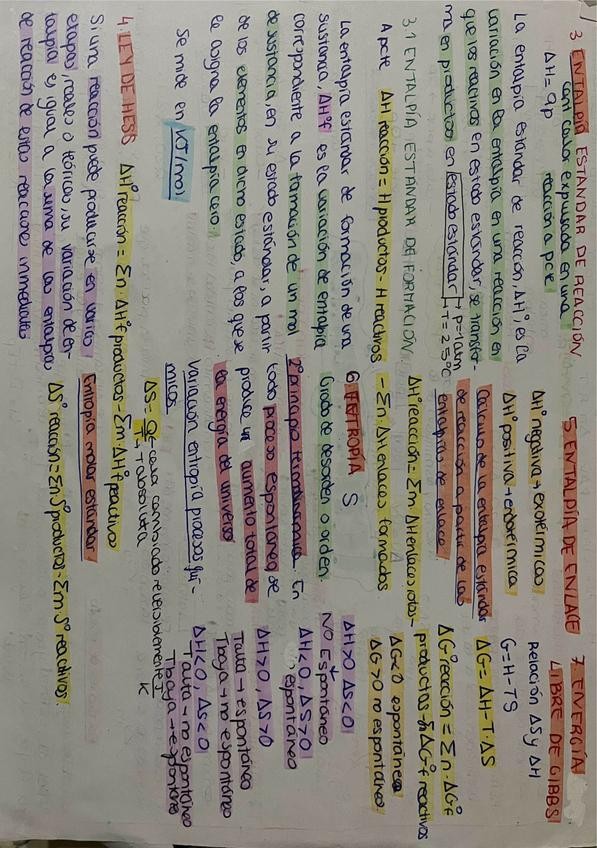 3. ENTALPIA ESTANDAR DE REACCIÓN
cant calor expulsada en una
reacción a pcte
ΔH = qp
La entalpia estandar de reacción, ΔH° es la
variación en la entalpia en una reacción en
que los reactivos en estado estandar, se transfor-
ma en productos en estado estandar
P=1atm
T=25ºC
3.1 ENTALPÍA ESTANDAR DE FORMACIÓN
A pcte ΔH reacción = H productos - H reactivos
La entalpia estandar de formación de una
sustancia, ΔH°f es la variación de entalpia
correspondiente a la formación de un mol
de sustancia, en su estado estándar, a partir
de los elementos en dicho estado, a los que se
le asigna la entalpia cero.
Se mide en KJ/mol
4. LEY DE HESS ΔH°reacción = Σn·ΔH°f productos - Σm·ΔH°f reactivo
Si una reacción puede producirse en varias
etapas, reales o teóricas, su variación de en-
talpia es igual a la suma de las entalpias
de reacción de estas reacciones inmediatas
5. ENTALPÍA DE ENLACE
ΔH° negativa → exotérmicas
ΔH° positiva → endotérmica
Calculo de la entalpia estándar
de reacción a partir de las
entalpias de enlace
ΔH°reacción = Σm·ΔHenlaces rotos -
- Σn·ΔHenlaces formados
6. ENTROPÍA S
Grado de desorden o orden
2º principio termodinámica. En
todo proceso espontáneo se
produce un aumento total de
la energia del universo
Variación entropía procesos quí-
micos
ΔS = Q ← calor cambiado reversiblemente J
T → T absoluta K
Entropia molar estándar
ΔS°reacción = Σn·S°productos - Σm·S°reactivos.
7. ENERGÍA
LIBRE DE GIBBS
Relación ΔS y ΔH
G = H - TS
ΔG = ΔH - T·ΔS
ΔG°reacción = Σn·ΔG°f
productos - ΣΔG°f reactivos
ΔG<0 espontánea
ΔG>0 no espontáneo
ΔH>0 ΔS<0
NO Espontáneo
ΔH<0, ΔS>0
espontáneo
ΔH>0, ΔS>0
T alta → espontáneo
T baja → no espontáneo
ΔH<0, ΔS<0
T alta → no espontáneo
T baja → espontáneo